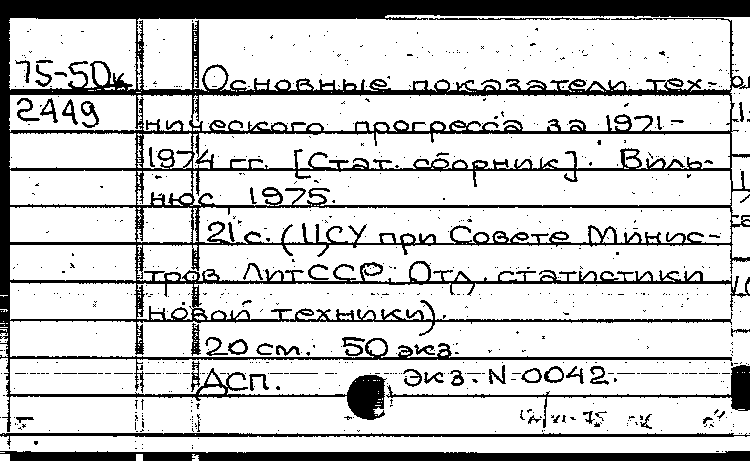 75-50к Основные показатели тех-
2449 нического прогресса за 1971-
1974 гг. [Стат. сборник]. Виль-
нюс, 1975.
21 с. (ЦСУ при Совете Минис-
тров ЛитССР. Отд. статистики
новой техники).
20 см. 50 экз.
ДСП. Экз. N 0042.